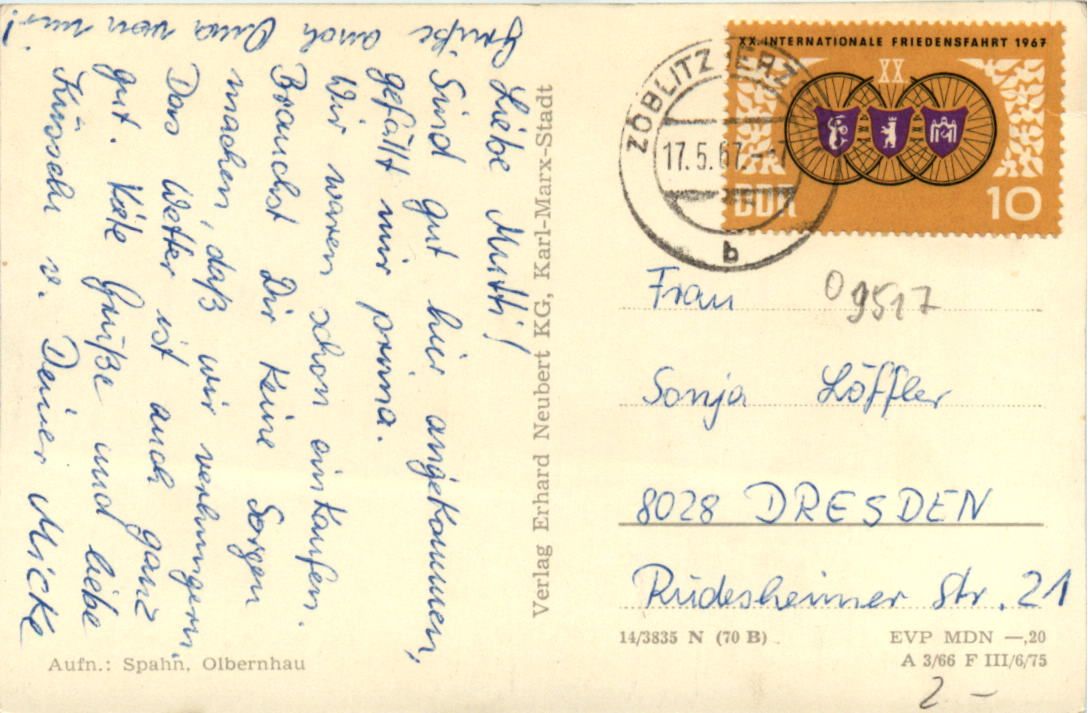 Liebe Mutti!
Sind gut hier angekommen,
gefällt mir prima.
Wir waren schon einkaufen.
Brauchst Dir keine Sorgen
machen, daß wir verhungern.
Das Wetter ist auch ganz
gut. Käte Grüße und liebe
Küsschen v. Deiner Micke
Grüße auch Oma von mir!
Verlag Erhard Neubert KG, Karl-Marx-Stadt
Aufn.: Spahn, Olbernhau
XX. INTERNATIONALE FRIEDENSFAHRT 1967
XX
DDR
10
ZÖBLITZ (ERZ
17.5.67
b
O 9517
Frau
Sonja Löffler
8028 DRESDEN
Rüdesheimer Str. 21
14/3835 N (70 B)
EVP MDN —,20
A 3/66 F III/6/75
2 –